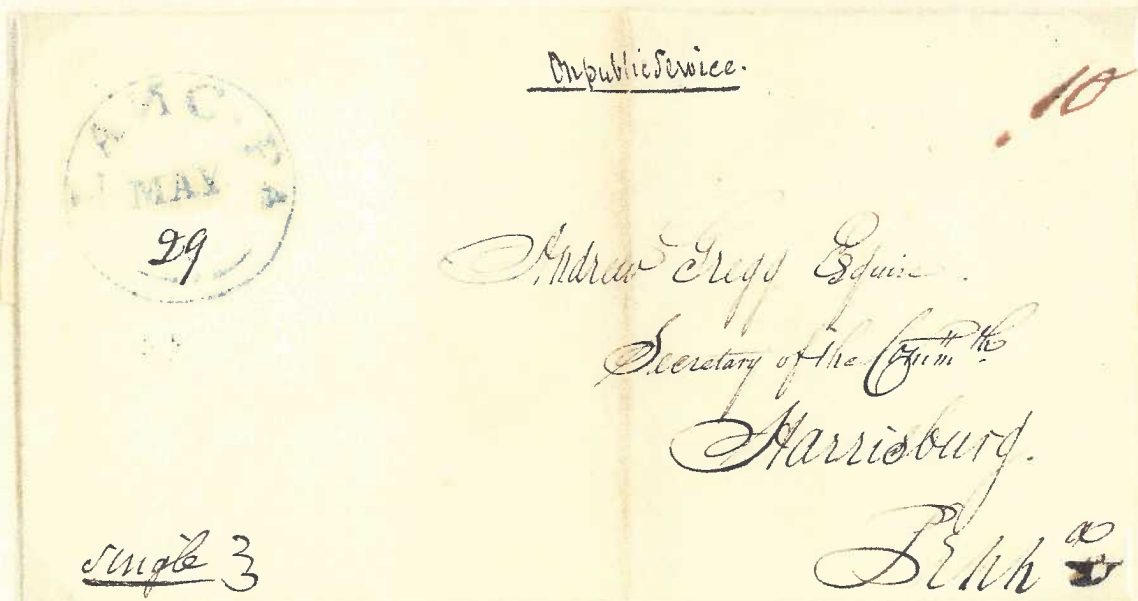 On public Service.
10
LANC. PA
MAY
29
Andrew Gregg Esquire.
Secretary of the Comm.th
Harrisburg.
Penn a
Single 3